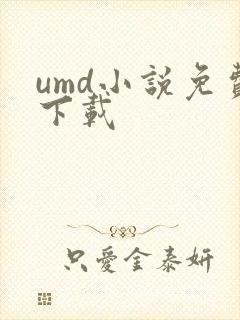 umd小說免費
下載
只愛金泰妍